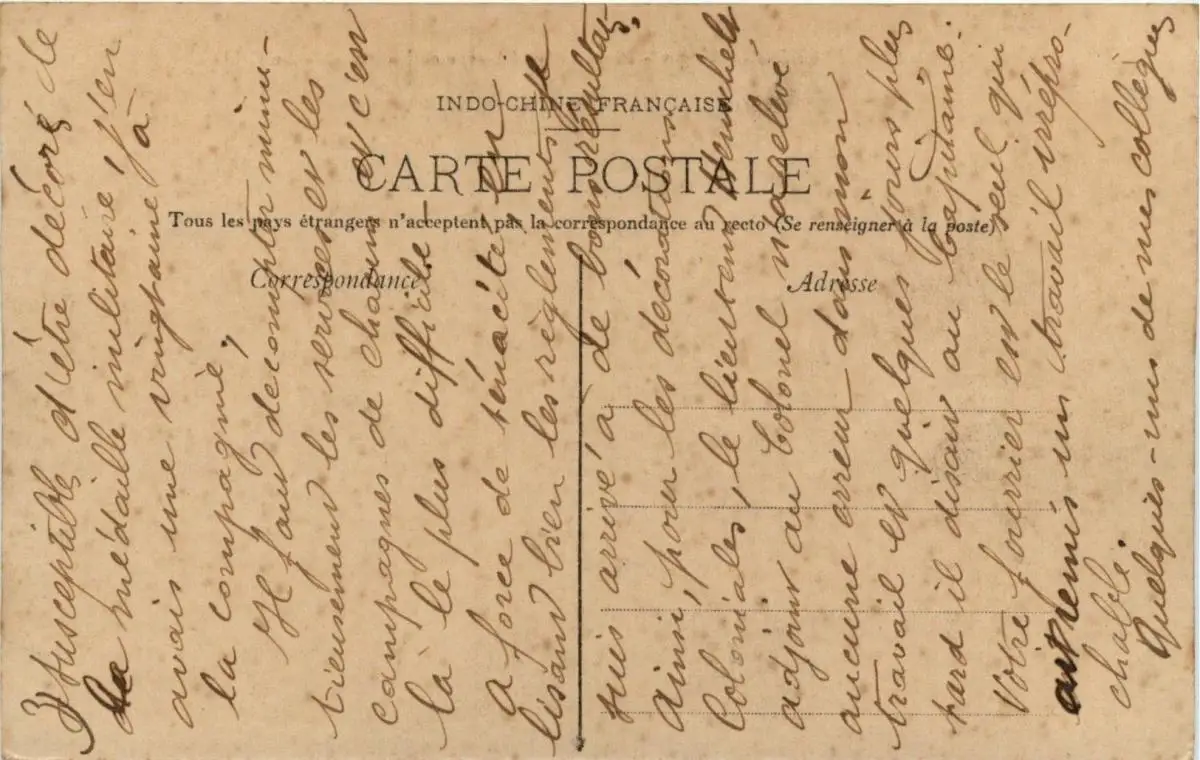 INDO-CHINE FRANÇAISE
CARTE POSTALE
Tous les pays étrangers n'acceptent pas la correspondance au recto (Se renseigner à la poste)
Correspondance
Adresse
3 susceptible d'être décoré de
la médaille militaire j'en
avais une vingtaine à
la compagnie,
Il faut décompter minu-
tieusement les services et les
campagnes de chacun et c'en
là le plus difficile –
a force de ténacité en
lisant bien les règlements je
suis arrivé à de bons résultats.
ainsi, pour les décorations
Coloniales, le lieutenant
adjoint au Colonel n'a relevé
aucune erreur dans mon
travail et quelques jours plus
tard il disait au Capitaine:
Votre fourrier est le seul qui
ait remis un travail irrépro-
chable.
Quelques-uns de mes collègues